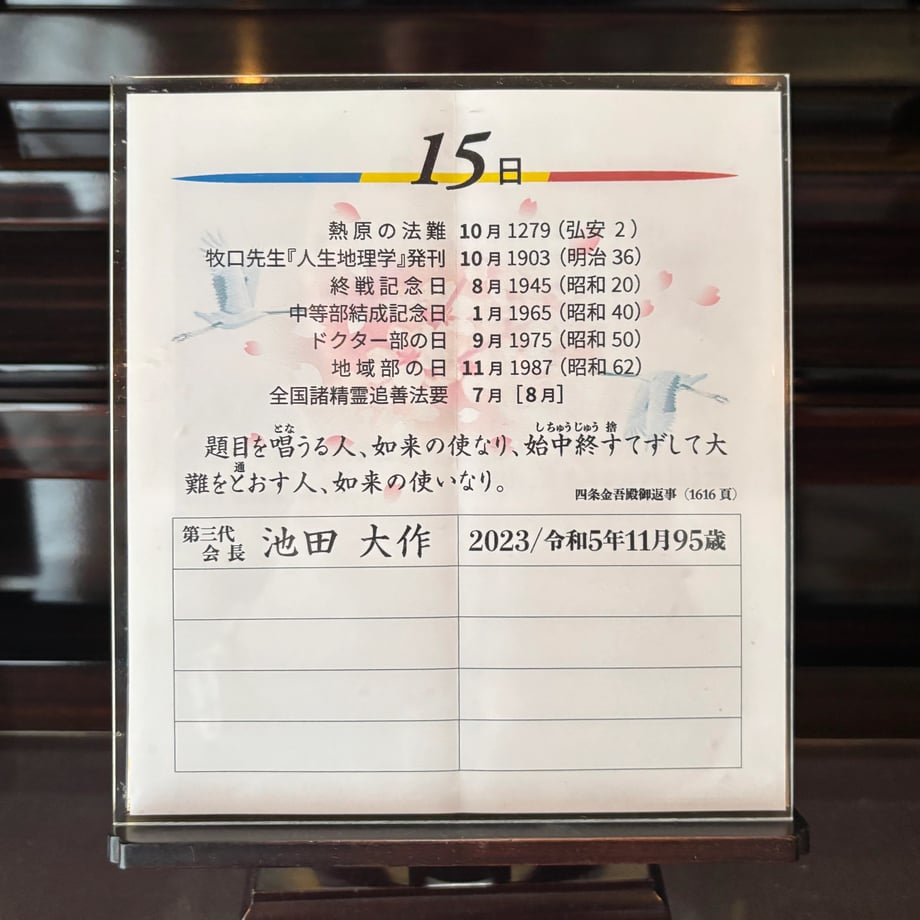 15日
熱原の法難 10月 1279(弘安 2)
牧口先生『人生地理学』発刊 10月 1903(明治 36)
終戦記念日 8月 1945(昭和 20)
中等部結成記念日 1月 1965(昭和 40)
ドクター部の日 9月 1975(昭和 50)
地域部の日 11月 1987(昭和 62)
全国諸精霊追善法要 7月[8月]
とな しちゅうじゅう 捨
題目を唱うる人、如来の使なり、始中終すてずして大
通
難をとおす人、如来の使いなり。
四条金吾殿御返事(1616頁)
第三代会長 池田 大作 2023/令和5年11月95歳